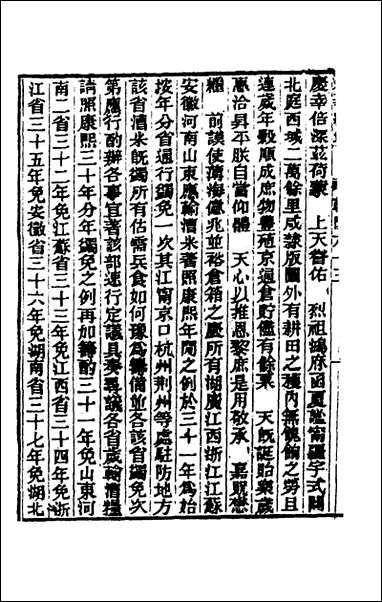 慶幸倍深茲荷蒙　上天眷佑　烈祖鴻庥函夏謐甯疆宇式闢
北庭西域二萬餘里咸隸版圖外有耕田之穫內無餽餉之勞且
連歲年穀順成庶物豐殖京通倉貯儘有餘粟　天既誕貽樂歲
惠洽昇平朕自當仰體　天心以推恩黎庶是用敬承　嘉貺懋
　前謨使薄海億兆並裕倉箱之慶所有湖廣江西浙江江蘇
安徽河南山東應輸漕米著照康熙年間之例於三十一年為始
按年分省通行蠲免一次其江南京口杭州荊州等處駐防地方
該省漕米既蠲所有估需兵食如何豫為籌備並各該省蠲免次
第應行酌辦各事宜著該部速行定議具奏尋議各省歲輸漕糧
請照康熙三十年分年蠲免之例再加籌酌三十一年免山東河
南二省三十二年免江蘇省三十三年免江西省三十四年免浙
江省三十五年免安徽省三十六年免湖南省三十七年免湖北